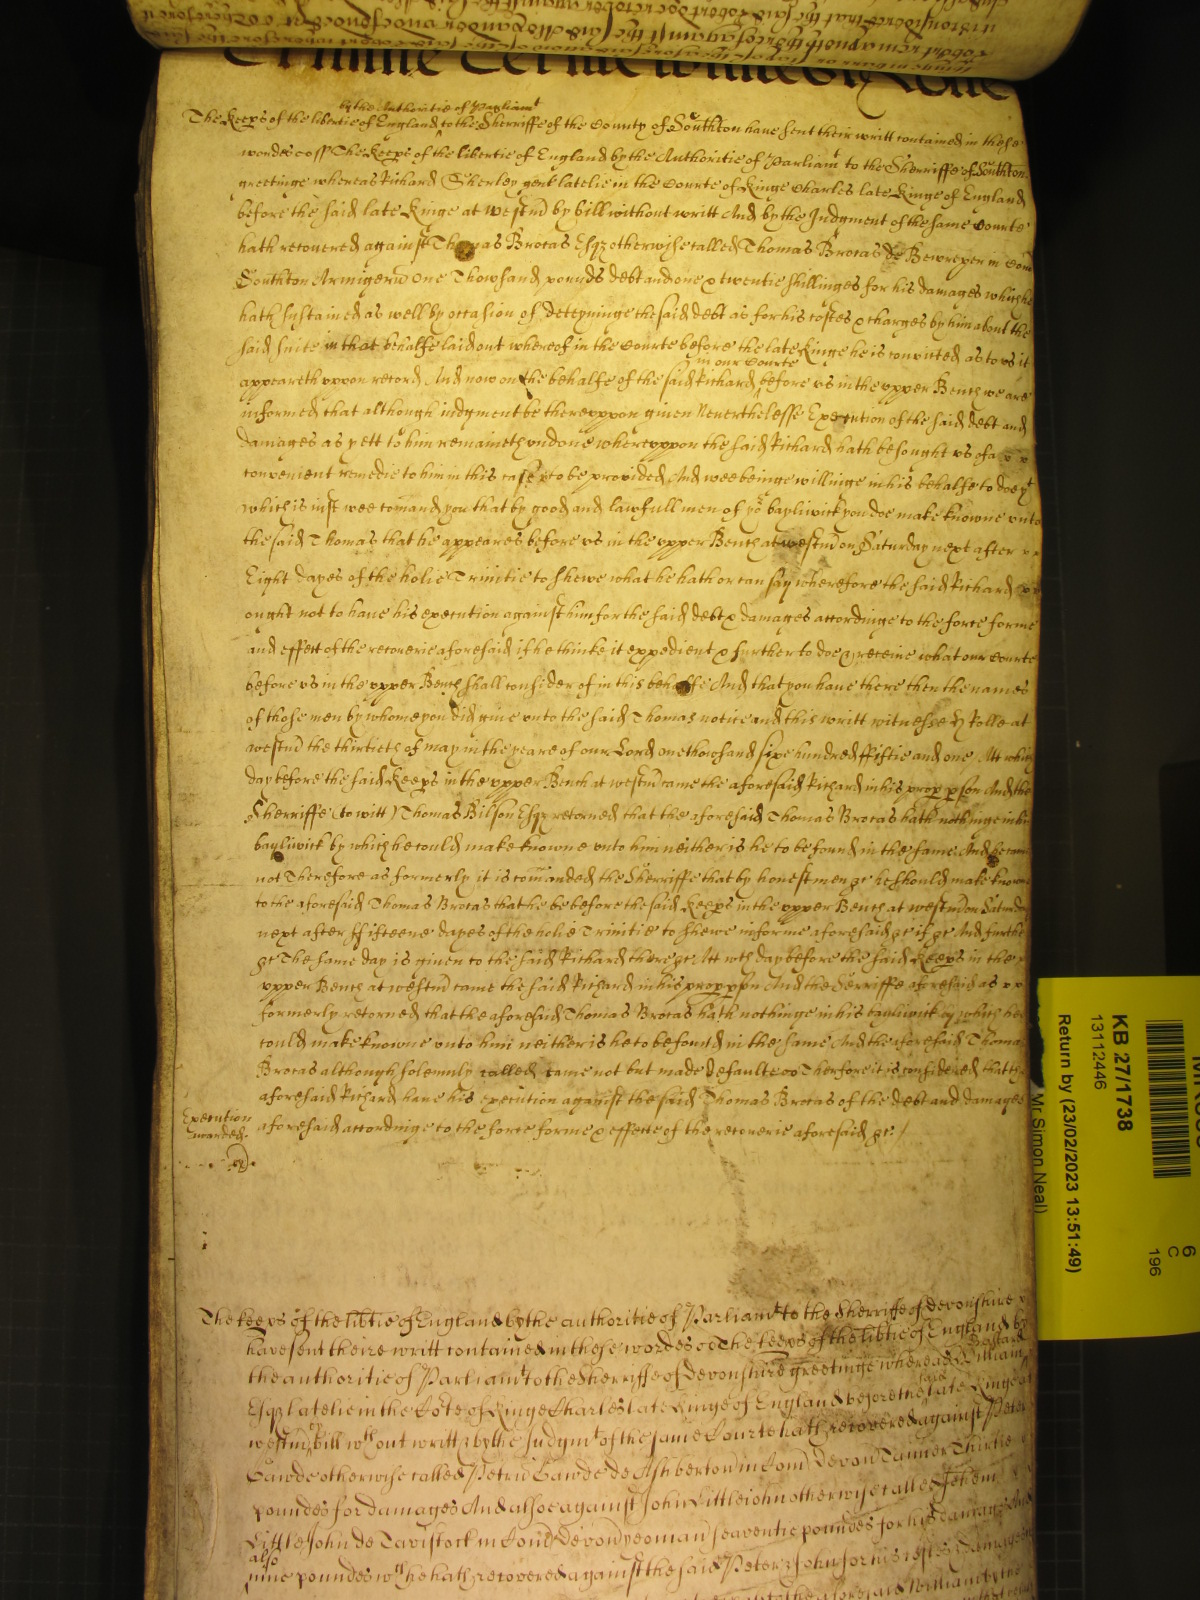 The Keeps of the libertie of England by the Authoritie of Parliamt to the Sherriffe of the County of Southton have sent their writt contained in these
wordes ss The Keeps of the libertie of England by the Authoritie of Parliamt to the Sherriffe of Southton
greetinge whereas Richard Sherley gent latelie in the Courte of Kinge Charles late Kinge of England
before the said late Kinge at Westmr by bill without writt And by the Judgment of the same Courte
hath recouered against Thomas Brocas Esqr otherwise called Thomas Brocas de Bewreper in Com
Southton Armigerū One Thowsand pounds debt and one & twentie shillinges for his damages which he
hath sustained as well by occasion of deteyninge the said debt as for his costes & charges by him about the
said suite in that behalfe laid out whereof in the Courte before the late Kinge he is convicted as to vs it
appeareth vppon record And now on the behalfe of the said Richard in our Courte before vs in the vpper Bench we are
informed that although iudgment be therevppon giuen Neverthelesse Execution of the said debt and
damages as yett to him remaineth vndone wherevppon the said Richard hath besought vs of a
convenient remedie to him in this case to be provided And wee beinge willinge in his behalfe to doe yt
which is iust wee comand you that by good and lawfull men of yor bayliwick you doe make knowne vnto
the said Thomas that he appeares before vs in the vpper Bench at westmr on Saturday next after
Eight dayes of the holie Trinitie to shewe what he hath or can say wherefore the said Richard
ought not to haue his execution against him for the said debt & damages accordinge to the force forme
and effect of the recouerie aforesaid if he thinke it expedient & further to doe & receiue what our Courte
before vs in the vpper Bench shall consider of in this behalfe And that you haue there then the names
of those men by whome you did giue vnto the said Thomas notice and this writt witnesse H Rolle at
westmr the thirtieth of may in the yeare of our Lord one thowsand sixe hundred ffiftie and one Att which
day before the said Keeps in the vpper Bench at westmr came the aforesaid Richard in his prop pson And the
Sherriffe (to witt) Thomas Bilson Esqr retorned that the aforesaid Thomas Brocas hath nothinge in his
bayliwick by which he could make knowne vnto him neither is he to be found in the same And he came
not Therefore as formerly it is comanded the Sherriffe that by honest men &c he should make knowne
to the aforesaid Thomas Brocas that he be before the said Keeps in the vpper Bench at westmr on Saturday
next after ffifteene dayes of the holie Trinitie to shewe in forme aforesaid &c if &c And further
&c The same day is giuen to the said Richard there &c Att wch day before the said Keeps in the
vpper Bench at westmr came the said Richard in his prop pson And the Sherriffe aforesaid as
formerly retorned that the aforesaid Thomas Brocas hath nothinge in his bayliwick by which hee
could make knowne vnto him neither is he to be found in the same And the aforesaid Thomas
Brocas although solemnly called came not but made default Therfore it is considered that the
aforesaid Richard haue his execution against the said Thomas Brocas of the debt and damages
Execution
awarded
aforesaid accordinge to the force forme & effecte of the recouerie aforesaid &c.
The keeps of the libtie of England by the authoritie of Parliamt to the Sherriffe of devonshire
have sent theire writt contained in these wordes ss The keeps of the libtie of England by
the authoritie of Parliamt to the Sherriffe of Devonshire greetinge whereas William Bastard
Esqr latelie in the Cote of Kinge Charles late Kinge of England before the said late Kinge at
westmr by bill wthout writt & by the Judgmt of the same Courte hath recovered against Peter
Gawde otherwise called Petrū Gawde de Ashberton in Com Devon Tanner Thirtie
poundes for damages And alsoe against John Littleiohn otherwise called Johem
Little John de Tavistock in Com Devon yeoman seaventie poundes for his damages And
also nine poundes wch he hath recovered against the said Peter & John for his costes & damages
KB 27/1738
13112446
Return by (23/02/2023 13:51:49)
Mr Simon Neal)
6
C
196